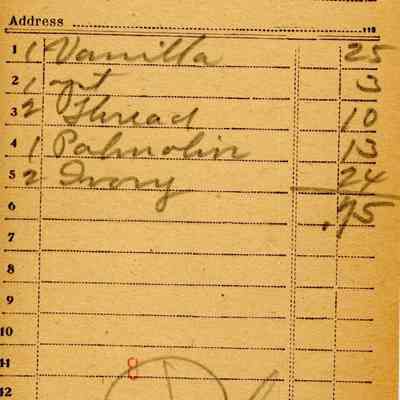 Address 115
1 1 Vanilla 25
2 1 pt 3
3 2 Thread 10
4 1 Palmolin 13
5 2 Ivory 24
6 .75
7
8
9
10
11 8
12